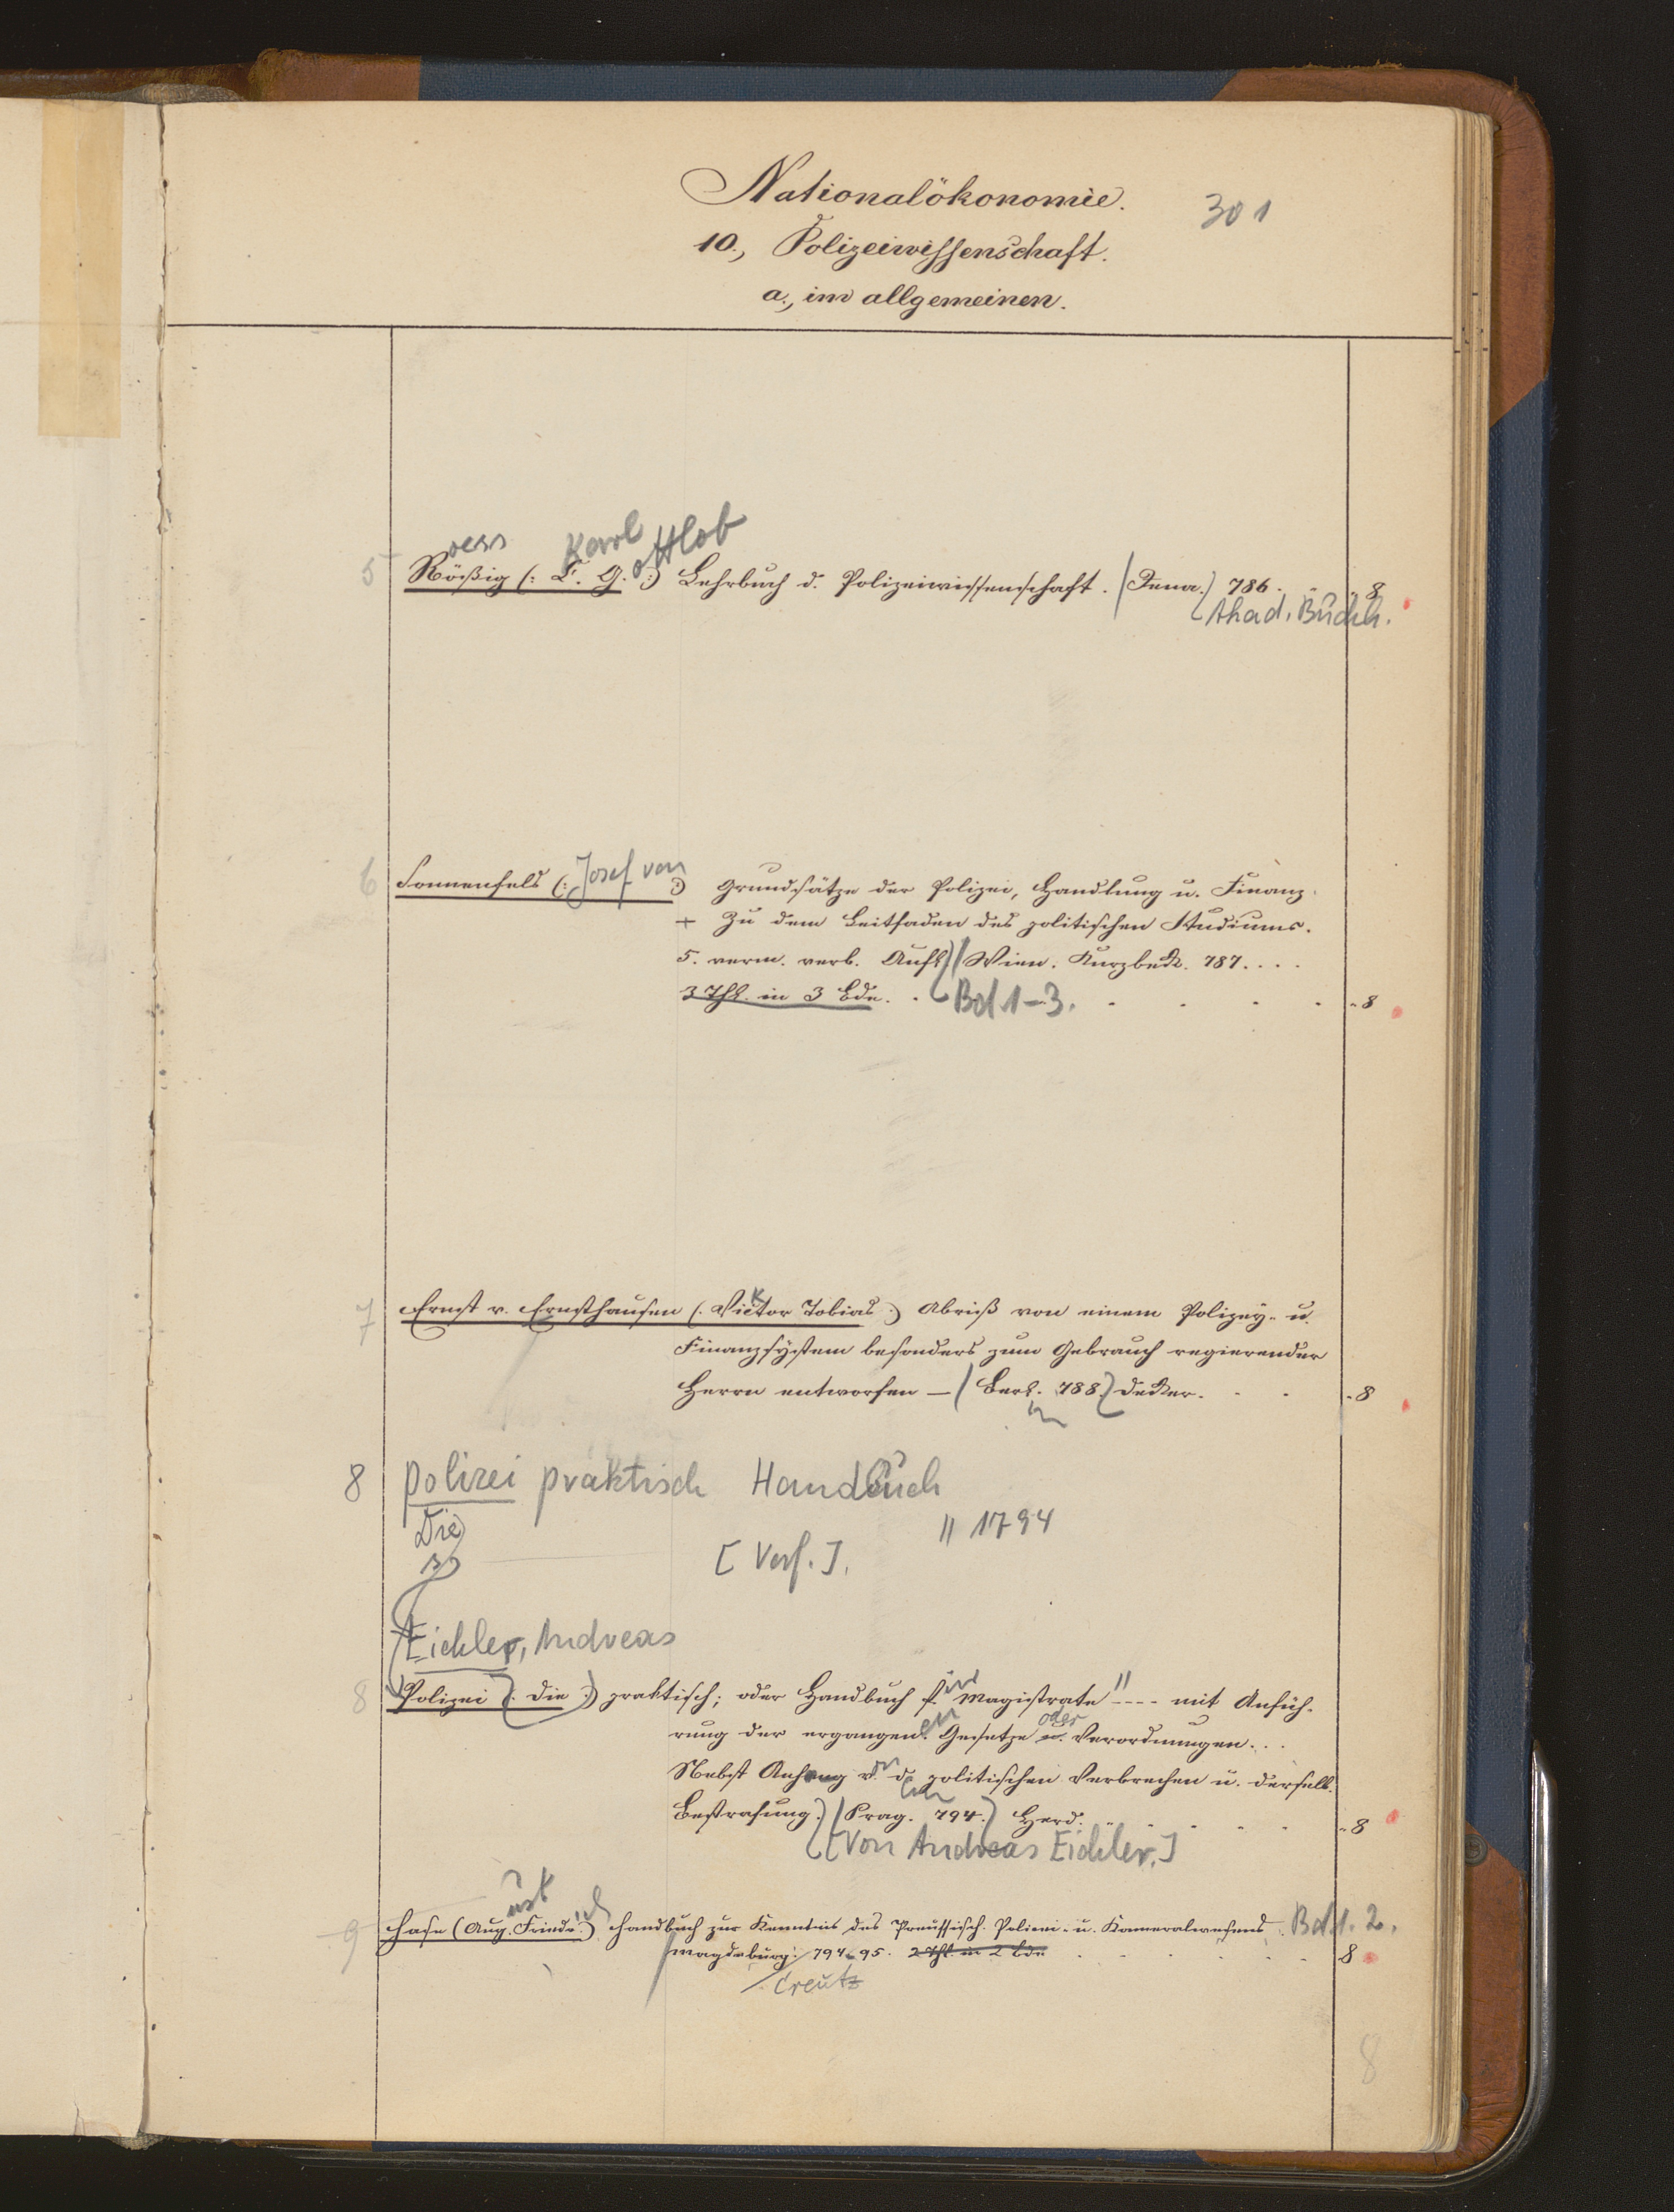 Nationalökonomie.
301
10., Polizeiwissenschaft.
a., im allgemeinen.
oess Karl ottlob
5 Rößig (: C. G. :) Lehrbuch d. Polizeiwissenschaft. (Jena.) 786. 8
Akad. Buchh.
6 Sonnenfels (: Josef von :) Grundsätze der Polizei, Handlung u. Finanz.
+ Zu dem Leitfaden des politischen Studiums.
5. verm. verb. Aufl. (Wien. Kurzbeck. 787....
3 Thl. in 3 Bde. Bd 1-3. 8
7 Ernst v. Ernsthausen (. Victor Tobias .) Abriß von einem Polizey- u.
k
Finanzsystem besonders zum Gebrauch regierender
Herrn entworfen — (Berl. 788.) Decker. 8
in
8 Polizei praktisch Handbuch
Die
" 1794
[Verf.].
Eichler, Andreas
8 Polizei (. Die .) praktisch; oder Handbuch f. Magistrate " ---- mit Anfüh-
oder
rung der ergangen. en Gesetze u. Verordnungen...
Nebst Anhang v. d. politischen Verbrechen u. derselb.
Bestrafung.) (Prag. 794.) Herd. 8
[Von Andreas Eichler.]
ust ich
9 Hase (Aug. Friedr.) Handbuch zur Kenntnis des Preussisch. Polizei- u. Kameralwesens. Bd. 1. 2.
Magdeburg. 794-95. 2 Thl. in 2 Bde 8
Creutz
8